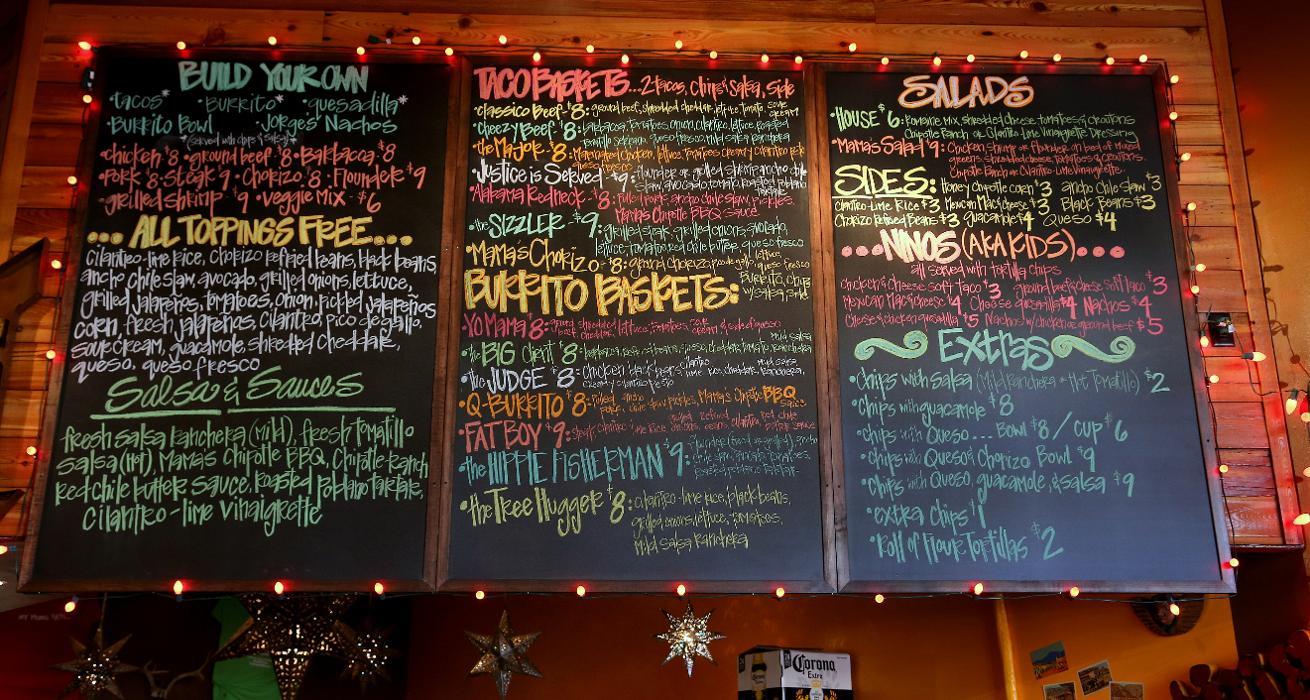 BUILD YOUR OWN
•tacos* •Burrito* •quesadilla*
•Burrito Bowl •Jorge's Nachos
(served with chips & salsa)*
•chicken $8 •ground beef $8 •Barbacoa $8
•Pork $8 •Steak $9 •Chorizo $8 •Flounder $9
•grilled shrimp $9 •veggie Mix $6
... ALL TOPPINGS FREE....
cilantro-lime rice, chorizo refried beans, black beans,
ancho chile slaw, avocado, grilled onions, lettuce,
grilled jalapeños, tomatoes, onion, pickled jalapeños
corn, fresh jalapeños, cilantro, pico de gallo,
sour cream, guacamole, shredded cheddar,
queso, queso fresco
Salsa & Sauces
fresh salsa Ranchera (mild), fresh tomatillo
salsa (Hot), Mama's Chipotle BBQ, Chipotle-Ranch
red chile butter sauce, roasted Poblano tartar,
cilantro-lime vinaigrette
TACO BASKETS...2 tacos, Chips & Salsa, Side
•classico Beef $8: ground beef, shredded cheddar, lettuce, tomato, sour cream
•Cheezy Beef $8: barbacoa, tomatoes, onion, cilantro, lettuce,
•the Major $8: Marinated Chicken, lettuce, tomatoes
Justice is Served $9: flounder or grilled shrimp, ancho chile
slaw, avocado, tomato,
Alabama Redneck $8: Pulled Pork, ancho chile slaw, pickles,
Mama's Chipotle BBQ sauce
•the SIZZLER $9: grilled steak, grilled onions, avocado,
lettuce, tomato, red chile butter, queso fresco
•Mama's Chorizo $8: ground chorizo, pico de gallo, lettuce, queso fresco
BURRITO BASKETS: Burrito, Chips
w/ Salsa, Side
YO Mama $8: ground beef, shredded cheddar, lettuce, tomatoes, sour cream & side of queso
•the BIG Client $8:
•the JUDGE $8: Chicken, black beans, cilantro lime rice,
•Q-BURRITO $8: Pulled Pork, ancho chile slaw, pickles, Mama's Chipotle BBQ Sauce
•FAT BOY $9: Steak, cilantro lime rice,
•the HIPPIE FISHERMAN $9:
•the Tree Hugger $8: cilantro-lime rice, black beans,
grilled onions, lettuce, tomatoes,
Mild Salsa Ranchera
SALADS
•HOUSE $6: Romaine Mix, shredded cheese, tomatoes & croutons
Chipotle Ranch or Cilantro Lime Vinaigrette Dressing
•Mama's Salad $9: Chicken, shrimp or flounder on bed of mixed
greens, shredded cheese, tomatoes & croutons.
Chipotle Ranch or Cilantro-Lime Vinaigrette
SIDES: Honey chipotle corn $3 ancho Chile Slaw $3
Cilantro-Lime Rice $3 Mexican Mac & cheese $3 Black Beans $3
Chorizo Refried Beans $3 Guacamole $4 Queso $4
...NINOS (AKA KIDS)...
all served with tortilla chips
chicken & cheese soft taco $3 ground beef & cheese soft taco $3
Mexican Mac & cheese $4 Cheese quesadilla $4 Nachos $4
Cheese & chicken quesadilla $5 Nachos w/ chicken or ground beef $5
Extras
•Chips with salsa (Mild Ranchera + Hot Tomatillo) $2
•Chips with guacamole $8
•Chips with Queso... Bowl $8 / cup $6
•Chips with Queso & Chorizo Bowl $9
•Chips with Queso, guacamole, & salsa $9
•extra Chips $1
•Roll of Flour Tortillas $2
Corona
Extra